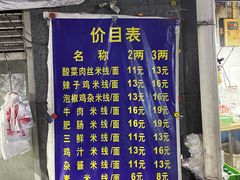 价目表
名称 2两 3两
酸菜肉丝米线/面 11元 13元
辣子鸡米线/面 13元 16元
泡椒鸡杂米线/面 13元 16元
牛肉米线/面 16元 19元
肥肠米线/面 16元 19元
三鲜米线/面 11元 13元
鸡汁米线/面 11元 13元
杂酱米线/面 11元 13元
素米线/面 6元 8元